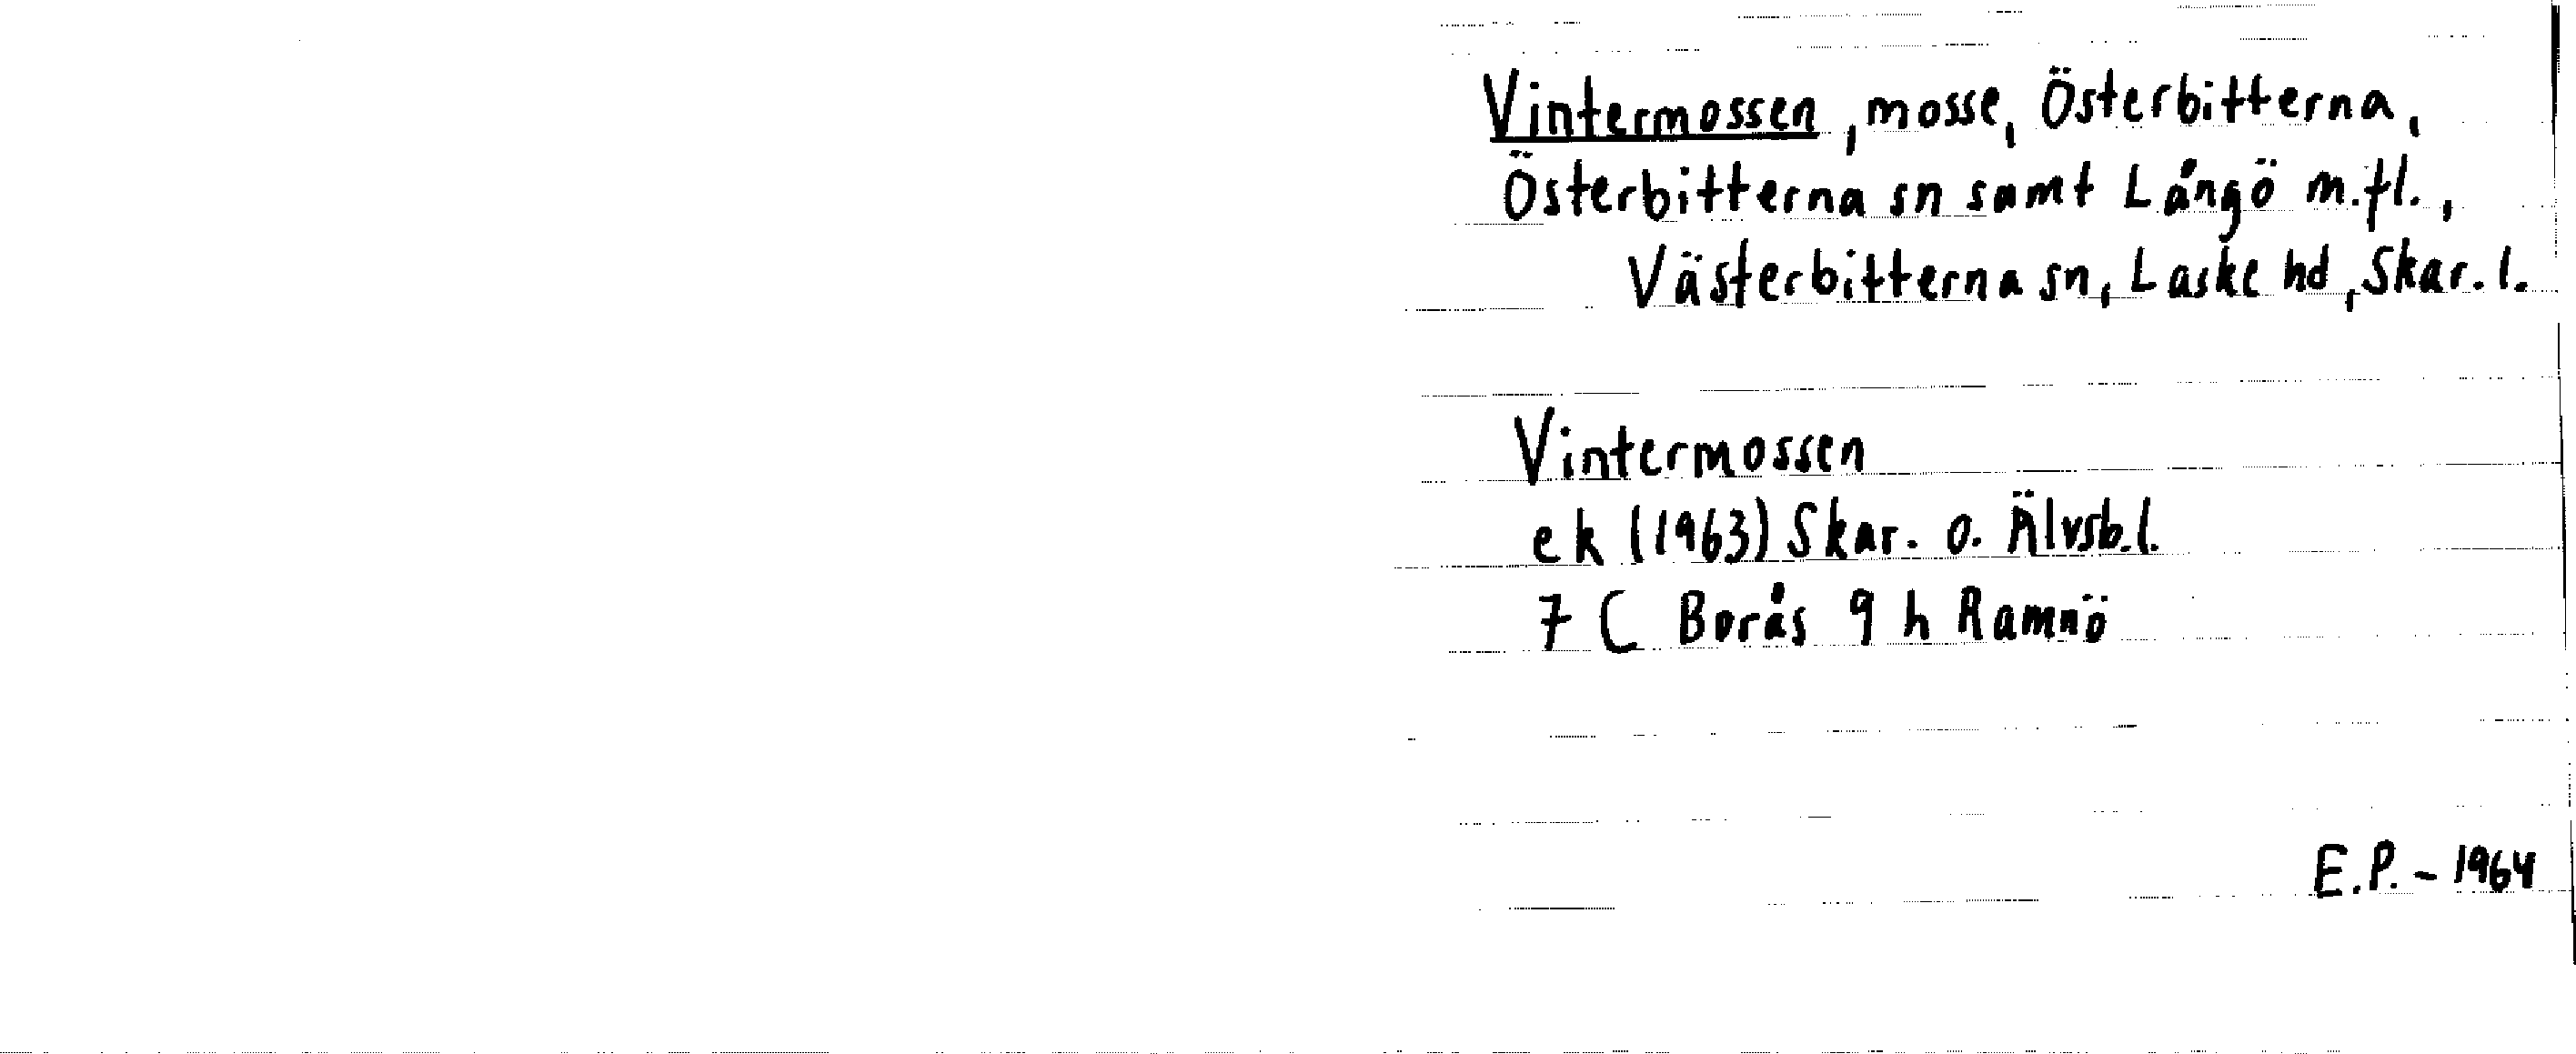 Vintermossen, mosse, Österbitterna,
Österbitterna sn samt Långö m.fl.,
Västerbitterna sn, Laske hd, Skar. l.
Vintermossen
ek (1963) Skar. o. Älvsb.l.
7 C Borås 9 h Ramnö
E.P. - 1964